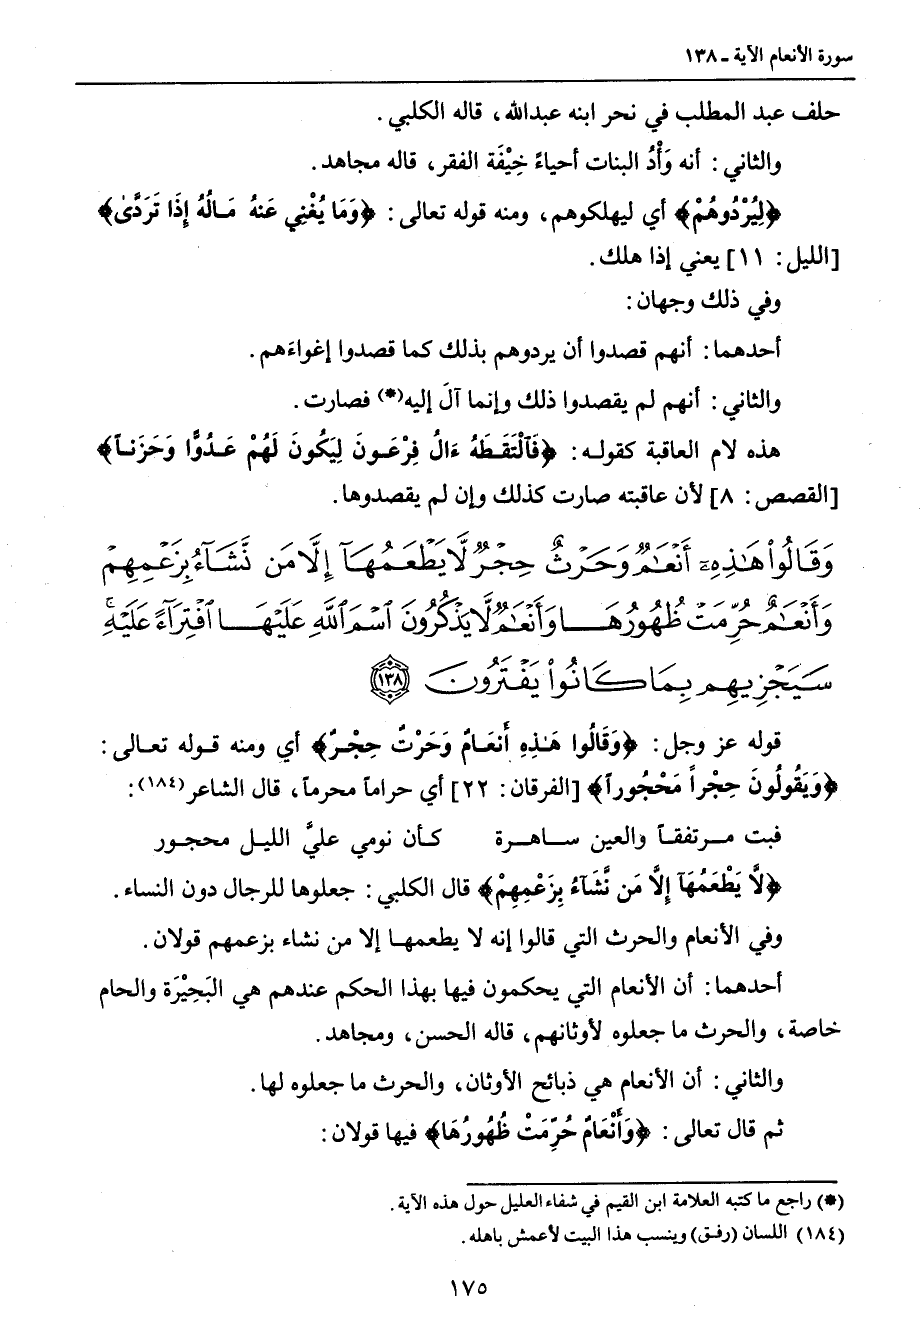 سورة الأنعام الآية ـ ١٣٨
حلف عبد المطلب في نحر ابنه عبدالله، قاله الكلبي.
والثاني: أنه وَأْدُ البنات أحياءً خِيْفَة الفقر، قاله مجاهد.
﴿لِيُرْدُوهُمْ﴾ أي ليهلكوهم، ومنه قوله تعالى: ﴿وَمَا يُغْنِي عَنهُ مَالُهُ إِذَا تَرَدَّىٰ﴾
[الليل: ١١] يعني إذا هلك.
وفي ذلك وجهان:
أحدهما: أنهم قصدوا أن يردوهم بذلك كما قصدوا إغواءَهم.
والثاني: أنهم لم يقصدوا ذلك وإنما آلَ إليه(*) فصارت.
هذه لام العاقبة كقوله: ﴿فَآلْتَقَطَهُ ءَالُ فِرْعَونَ لِيَكُونَ لَهُمْ عَدُوًّا وَحَزَناً﴾
[القصص: ٨] لأن عاقبته صارت كذلك وإن لم يقصدوها.
وَقَالُوا۟ هَـٰذِهِۦٓ أَنْعَـٰمٌ وَحَرْثٌ حِجْرٌ لَّا يَطْعَمُهَآ إِلَّا مَن نَّشَآءُ بِزَعْمِهِمْ
وَأَنْعَـٰمٌ حُرِّمَتْ ظُهُورُهَا وَأَنْعَـٰمٌ لَّا يَذْكُرُونَ ٱسْمَ ٱللَّهِ عَلَيْهَا ٱفْتِرَآءً عَلَيْهِ ۚ
سَيَجْزِيهِم بِمَا كَانُوا۟ يَفْتَرُونَ ١٣٨
قوله عز وجل: ﴿وَقَالُوا هَـٰذِهِ أَنعَامٌ وَحَرْثٌ حِجْرٌ﴾ أي ومنه قوله تعالى:
﴿وَيَقُولُونَ حِجْراً مَحْجُوراً﴾ [الفرقان: ٢٢] أي حراماً محرماً، قال الشاعر(١٨٤):
فبت مرتفقاً والعين ساهرة كأن نومي عليَّ الليل محجور
﴿لَّا يَطْعَمُهَآ إِلَّا مَن نَّشَآءُ بِزَعْمِهِمْ﴾ قال الكلبي: جعلوها للرجال دون النساء.
وفي الأنعام والحرث التي قالوا إنه لا يطعمها إلا من نشاء بزعمهم قولان.
أحدهما: أن الأنعام التي يحكمون فيها بهذا الحكم عندهم هي البَحِيْرَة والحام
خاصة، والحرث ما جعلوه لأوثانهم، قاله الحسن، ومجاهد.
والثاني: أن الأنعام هي ذبائح الأوثان، والحرث ما جعلوه لها.
ثم قال تعالى: ﴿وَأَنْعَامٌ حُرِّمَتْ ظُهُورُهَا﴾ فيها قولان:
(*) راجع ما كتبه العلامة ابن القيم في شفاء العليل حول هذه الآية.
(١٨٤) اللسان (رفق) وينسب هذا البيت لأعمش باهله.
١٧٥